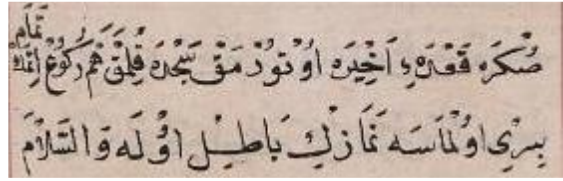 صُكْرَه قَعْدَهءِ اَخِيرَه اوُتوُرْمَقْ سَجْدَه قِلْمَقْ هَمْ رُكوُعْ اِتْمَكْ تَمَامْ
بِيرِى اوُلْمَاسَه نَمَازِكْ بَاطِيلْ اوُلَه وَالسَّلَامْ